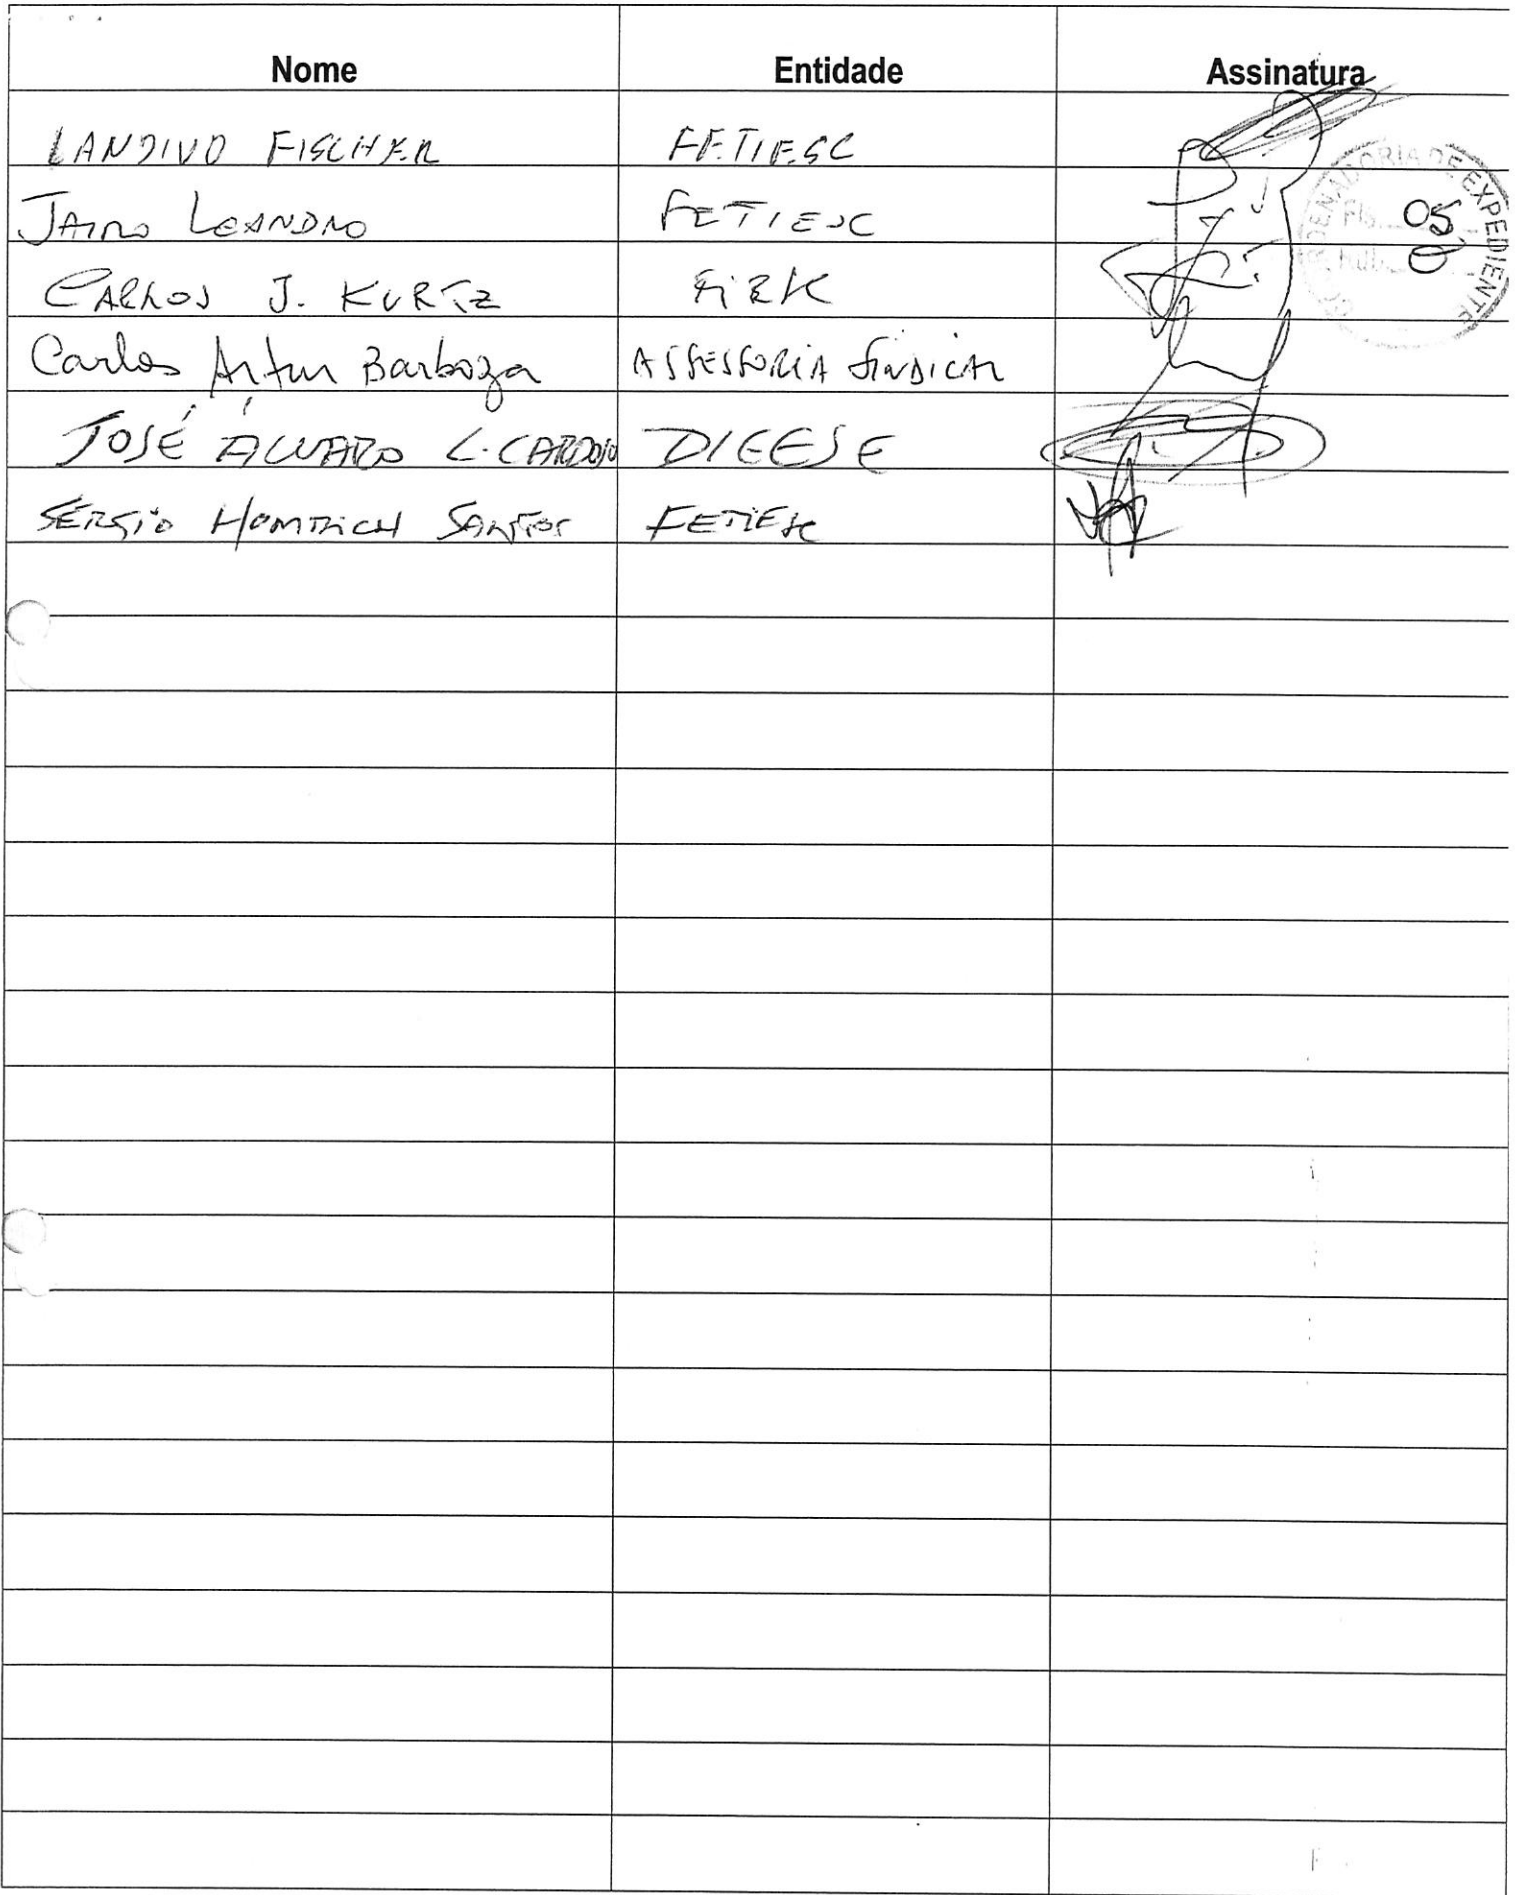 Nome Entidade Assinatura
LANDIVO FISCHER FETIESC
JAIRO LEANDRO FETIESC
CARLOS J. KURTZ
Carlos Artur Barboza ASSESSORIA SINDICAL
JOSÉ ÁLVARO L. CARDOSO DIEESE
SÉRGIO HOMRICH SANTOS FETIESC
COORDENADORIA DE EXPEDIENTE
05